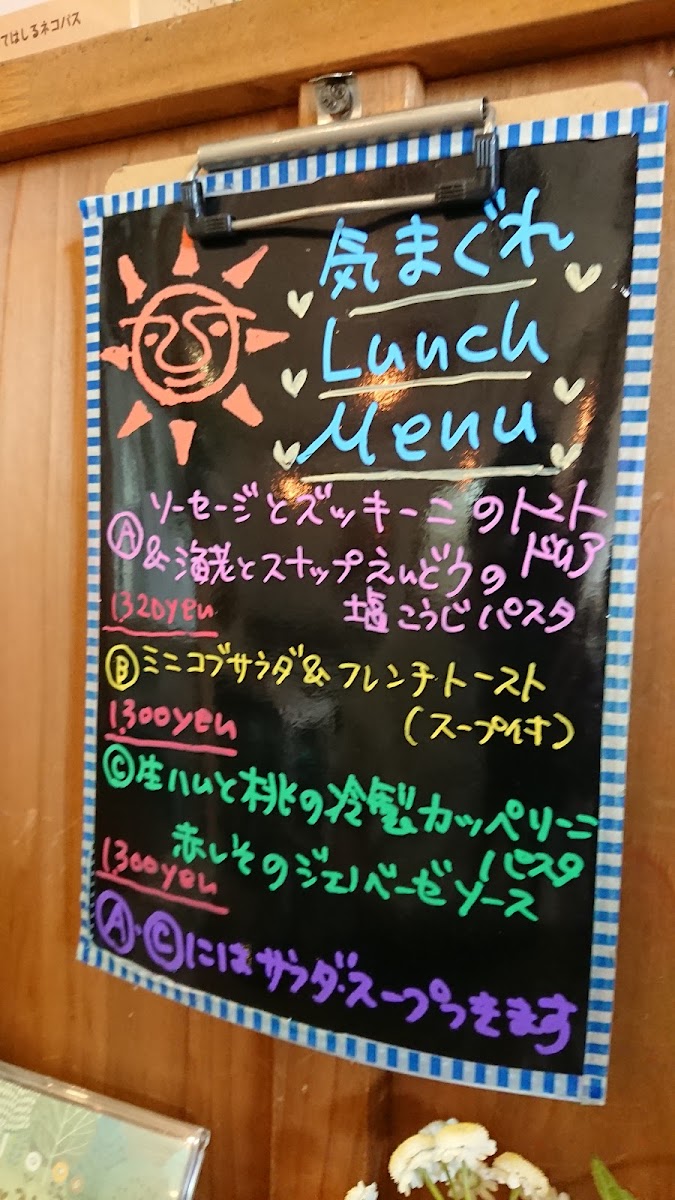 てはしるネコバス
気まぐれ
Lunch
Menu
Ⓐ ソーセージとズッキーニのトマトドリア
& 海老とスナップえんどうの
塩こうじパスタ
1,320yen
Ⓑ ミニコブサラダ&フレンチトースト
(スープ付)
1,300yen
Ⓒ 生ハムと桃の冷製カッペリーニパスタ
赤しそのジェノベーゼソース
1,300yen
Ⓐ・Ⓒにはサラダ・スープつきます